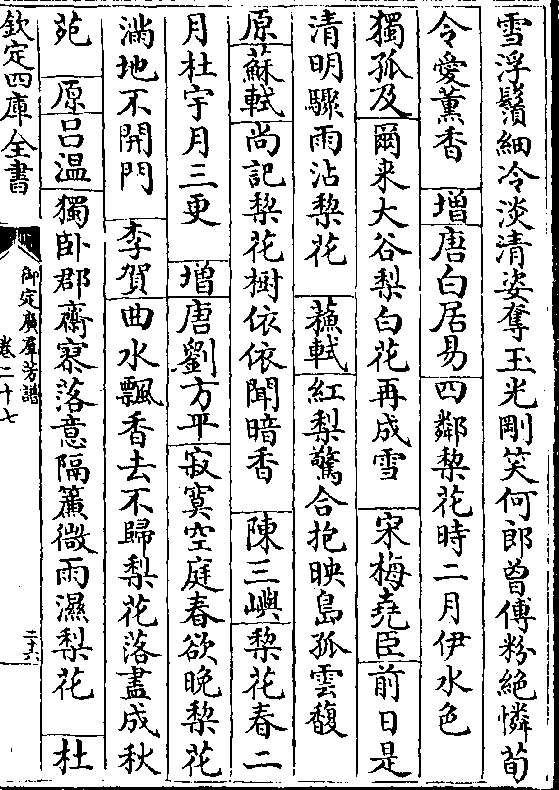 雪浮鬚細冷淡清姿奪玉光剛笑何郎曾傅粉絶憐荀
令愛薰香 增唐白居易四鄰梨花時二月伊水色
獨孤及爾來大谷梨白花再成雪 宋梅堯臣前日是
清明驟雨沾梨花 蘇軾紅梨驚合抱映島孤雲馥
原蘇軾尚記梨花樹依依聞暗香 陳三嶼梨花春二
月杜宇月三更 增唐劉方平寂寞空庭春欲晚梨花
滿地不開門 李賀曲水飄香去不歸梨花落盡成秋
苑 原吕温獨卧郡齋寥落意隔簾微雨濕梨花 杜
欽定四庫全書
御定廣羣芳譜
卷二十七
二十六